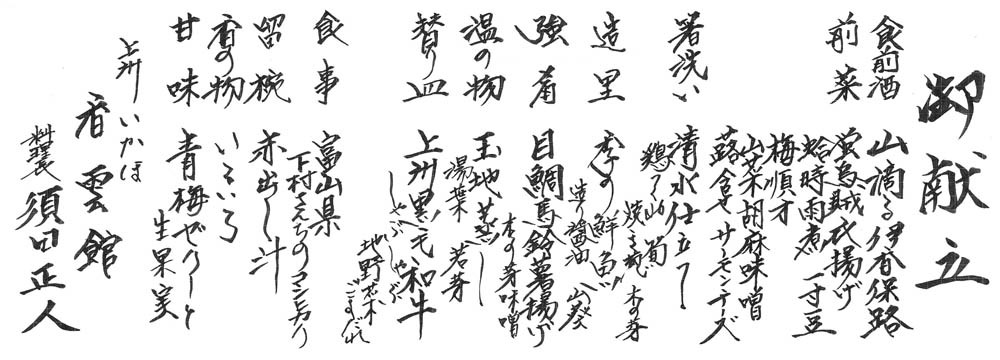 御献立
食前酒 山滴る伊香保路
前菜 蛍烏賊衣揚げ
蛤時雨煮 一寸豆
梅順才
山菜胡麻味噌
蕗含セ サーモンチーズ
箸洗い 清水仕立て
鶏つみ 筍
焼き 木の芽
造里 季の鮮魚
造り醤油 山葵
強肴 目鯛馬鈴薯揚げ
木の芽味噌
温の物 玉地蒸し
湯葉 若芽
賛り皿 上州黒毛和牛
しゃぶしゃぶ
地野菜 ごまだれ
食事 富山県
下村さんちのコシヒカリ
留椀 赤出し汁
香の物 いろいろ
甘味 青梅ぜりーと
生果実
上州いかほ
香雲館
料理長 須田正人